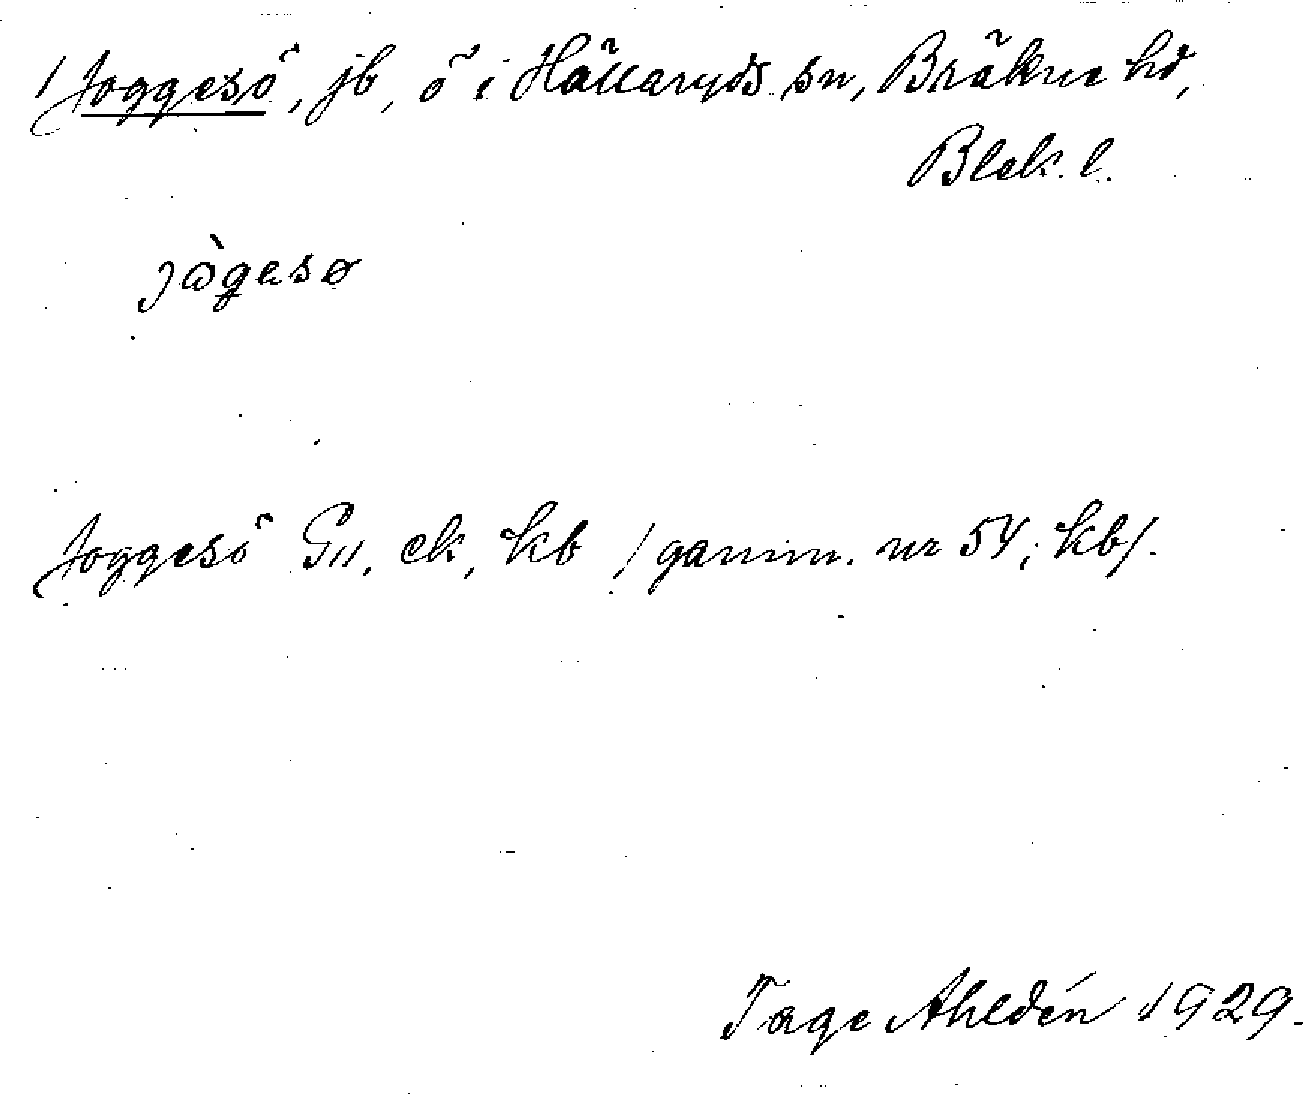 Joggesö, jb, ö i Hällaryds sn, Bräkne hd,
Blek. l.
jògesø
Joggesö G11, ek, kb /gamm. nr 54; kb/.
Tage Ahldén 1929.